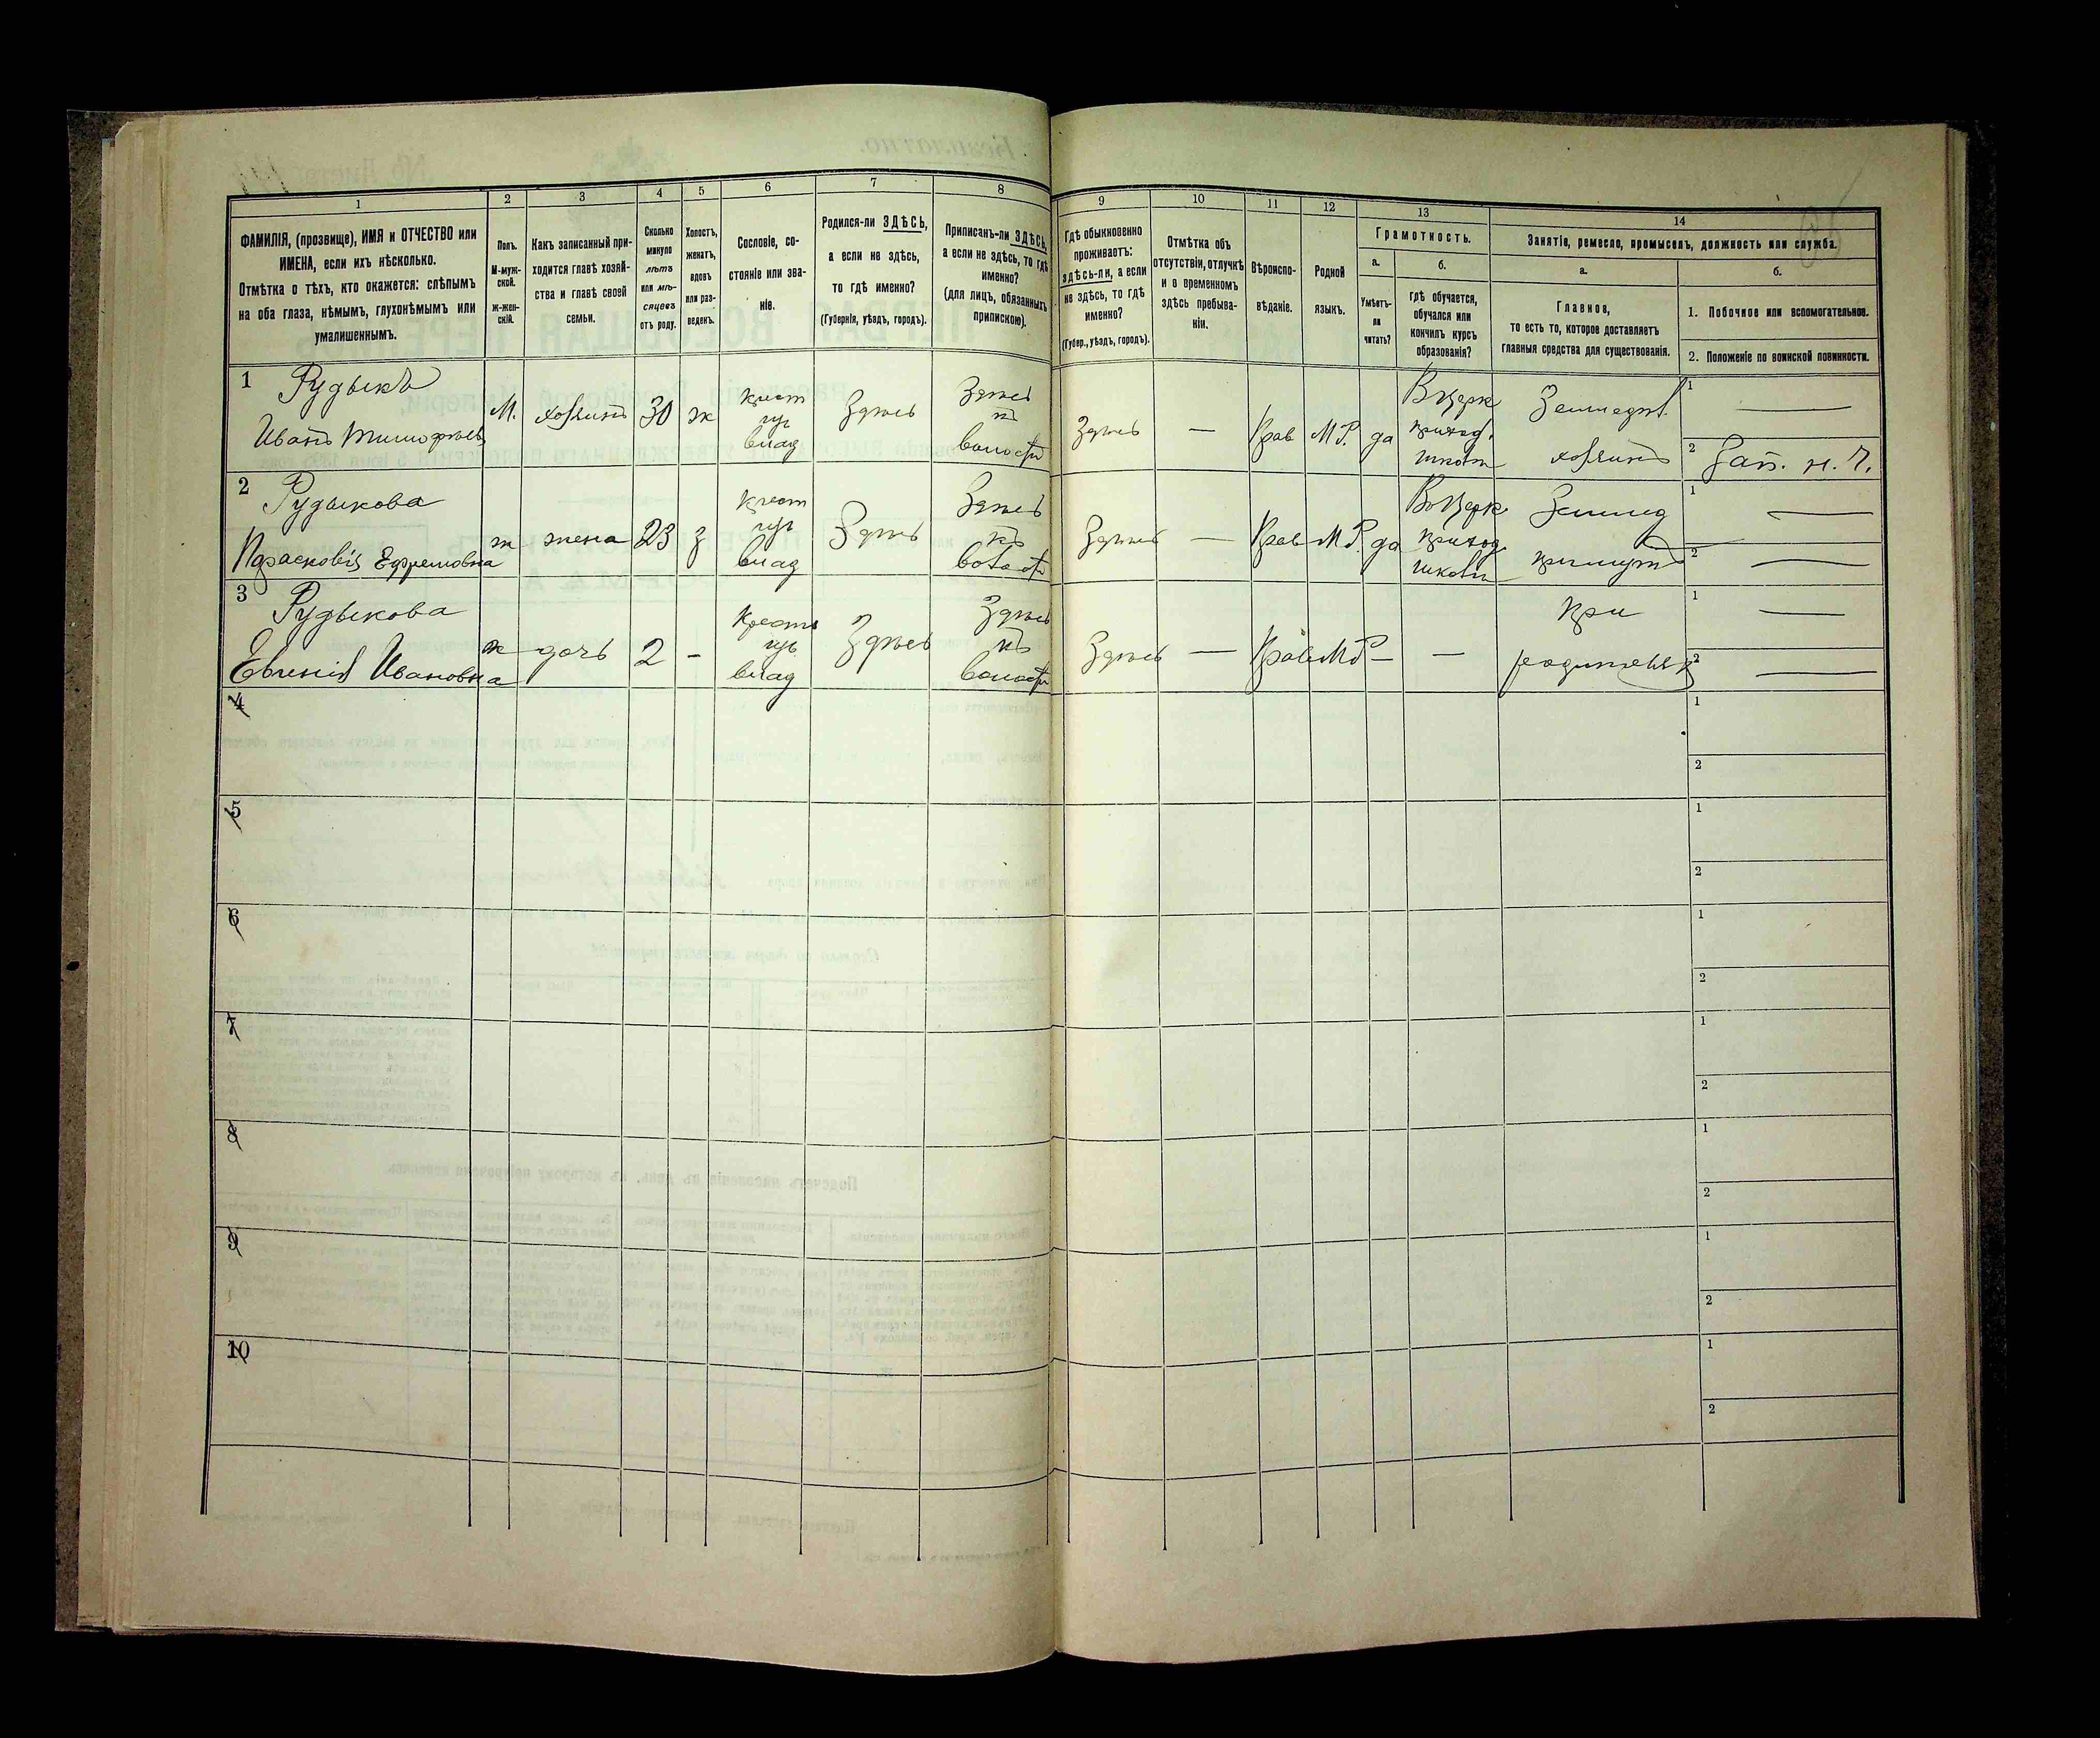 1
2
3
4
5
6
7
8
ФАМИЛІЯ, (прозвище), ИМЯ и ОТЧЕСТВО или
ИМЕНА, если ихъ нѣсколько.
Отмѣтка о тѣхъ, кто окажется: слѣпымъ
на оба глаза, нѣмымъ, глухонѣмымъ или
умалишеннымъ.
Полъ.
М-муж-
ской.
ж-жен-
скій.
Какъ записанный при-
ходится главѣ хозяй-
ства и главѣ своей
семьи.
Сколько
минуло
лѣтъ
или мѣ-
сяцевъ
отъ роду.
Холостъ,
женатъ,
вдовъ
или раз-
веденъ.
Сословіе, со-
стояніе или зва-
ніе.
Родился-ли ЗДѢСЬ,
а если не здѣсь,
то гдѣ именно?
(Губернія, уѣздъ, городъ).
Приписанъ-ли ЗДѢСЬ,
а если не здѣсь, то гдѣ
именно?
(для лицъ, обязанныхъ
припискою).
9
10
11
12
13
14
Гдѣ обыкновенно
проживаетъ:
здѣсь-ли, а если
не здѣсь, то гдѣ
именно?
(Губер., уѣздъ, городъ).
Отмѣтка объ
отсутствіи, отлучкѣ
и о временномъ
здѣсь пребыва-
ніи.
Вѣроиспо-
вѣданіе.
Родной
языкъ.
Грамотность.
а.
Умѣетъ-
ли
читать?
б.
Гдѣ обучается,
обучался или
кончилъ курсъ
образованія?
Занятіе, ремесло, промыселъ, должность или служба.
а.
Главное,
то есть то, которое доставляетъ
главныя средства для существованія.
б.
1. Побочное или вспомогательное.
2. Положеніе по воинской повинности.
1
Рудыкъ
Иванъ Тимофѣевъ
М.
хозяинъ
30
ж
крест
влад
Здѣсь
Здѣсь
къ
волости
Здѣсь
—
Прав
М Р.
да
В церк
приход.
школѣ
Земледѣл.
хозяинъ
1
—
2
Зап. н. ч.
2
Рудыкова
Прасковія Ефремовна
ж
жена
23
з
крест
влад
Здѣсь
Здѣсь
къ
волости
Здѣсь
—
Прав
М Р.
да
Въ церк
приход
школѣ
Землед
при мужѣ
1
—
2
—
3
Рудыкова
Евгенія Ивановна
ж
дочь
2
-
крест
влад
Здѣсь
Здѣсь
къ
волости
Здѣсь
—
Прав
М Р
—
—
при
родителяхъ
1
—
2
—
4
1
2
5
1
2
6
1
2
7
1
2
8
1
2
9
1
2
10
1
2